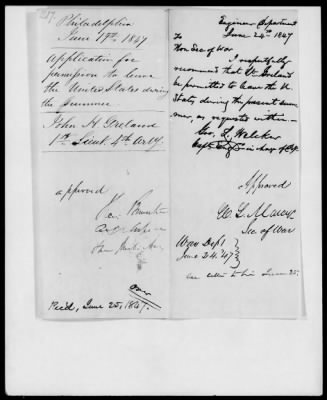 Philadelphia
June 17th 1847
Application for
permission to leave
the United States during
the summer
John H. Greland
1st Lieut. 4th Arty.
approved
over
Rec'd, June 25, 1847.
Engineer Department
June 24th 1847
To
Hon Sec of War
I respectfully
recommend that Lt Greland
be permitted to leave the U.
States during the present sum-
mer, as requested within—
Geo. L. Welcker
Capt Engrs in charge of Dpt
Approved
W. L. Marcy
Sec of War
War Dept
June 24. '47
see letter to him June 25.